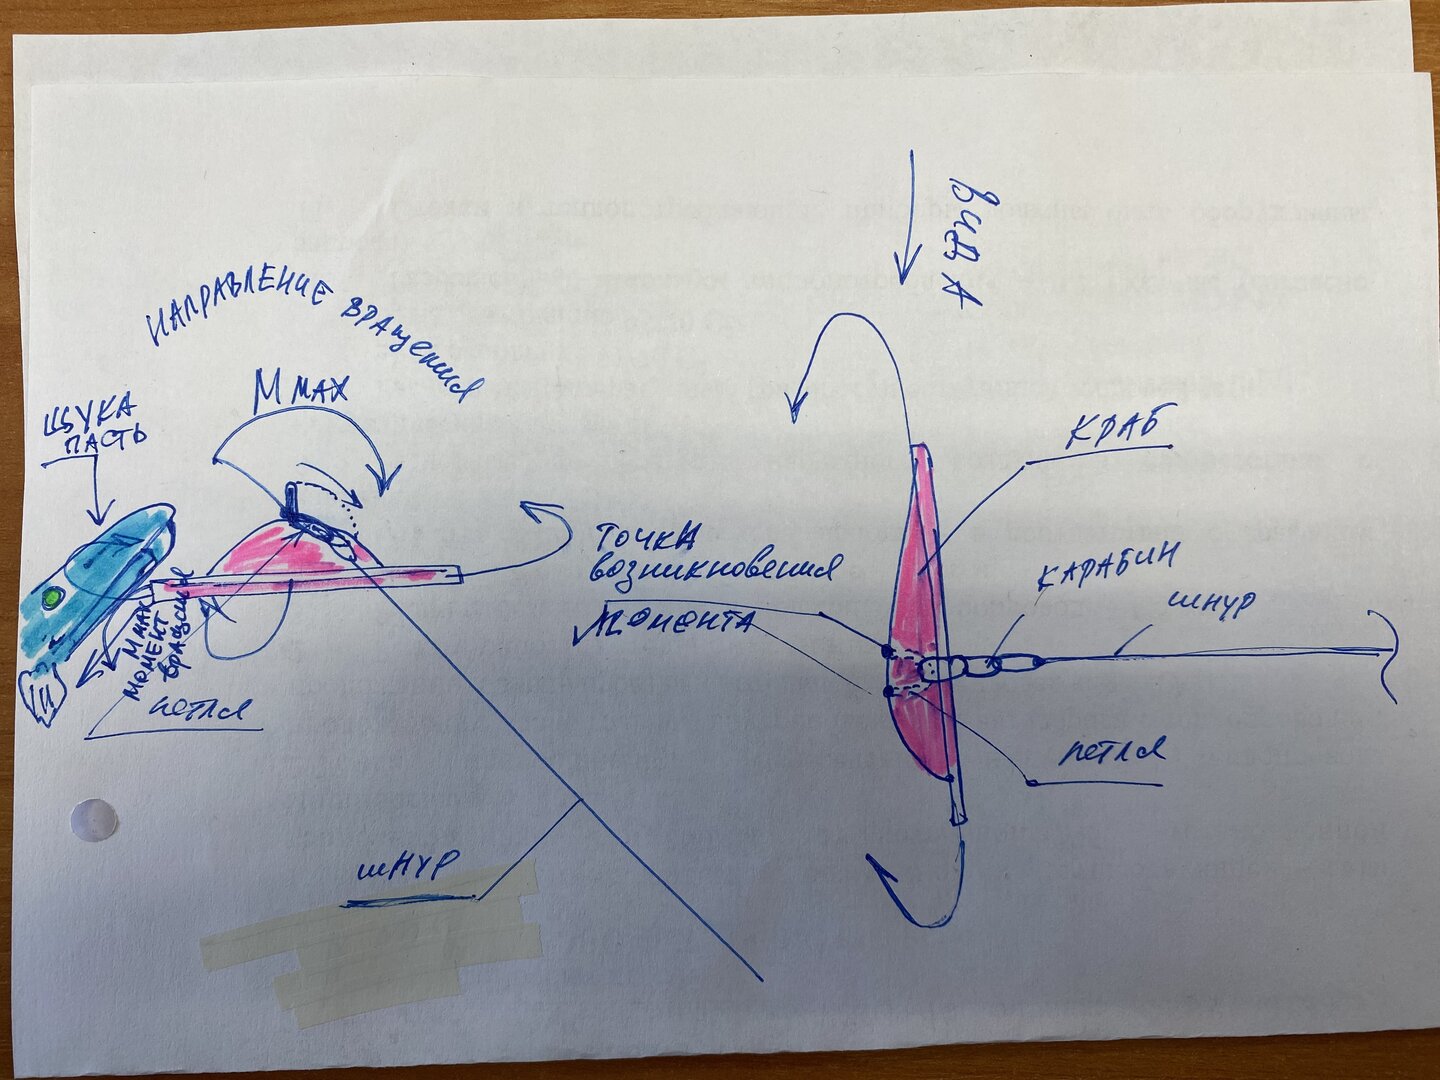 НАПРАВЛЕНИЕ ВРАЩЕНИЯ
М МАХ
ЩУКА
ПАСТЬ
М МАХ
МОМЕНТ
ВРАЩЕНИЯ
ПЕТЛЯ
ШНУР
ВИД А
КРАБ
ТОЧКА
ВОЗНИКНОВЕНИЯ
МОМЕНТА
КАРАБИН
ШНУР
ПЕТЛЯ